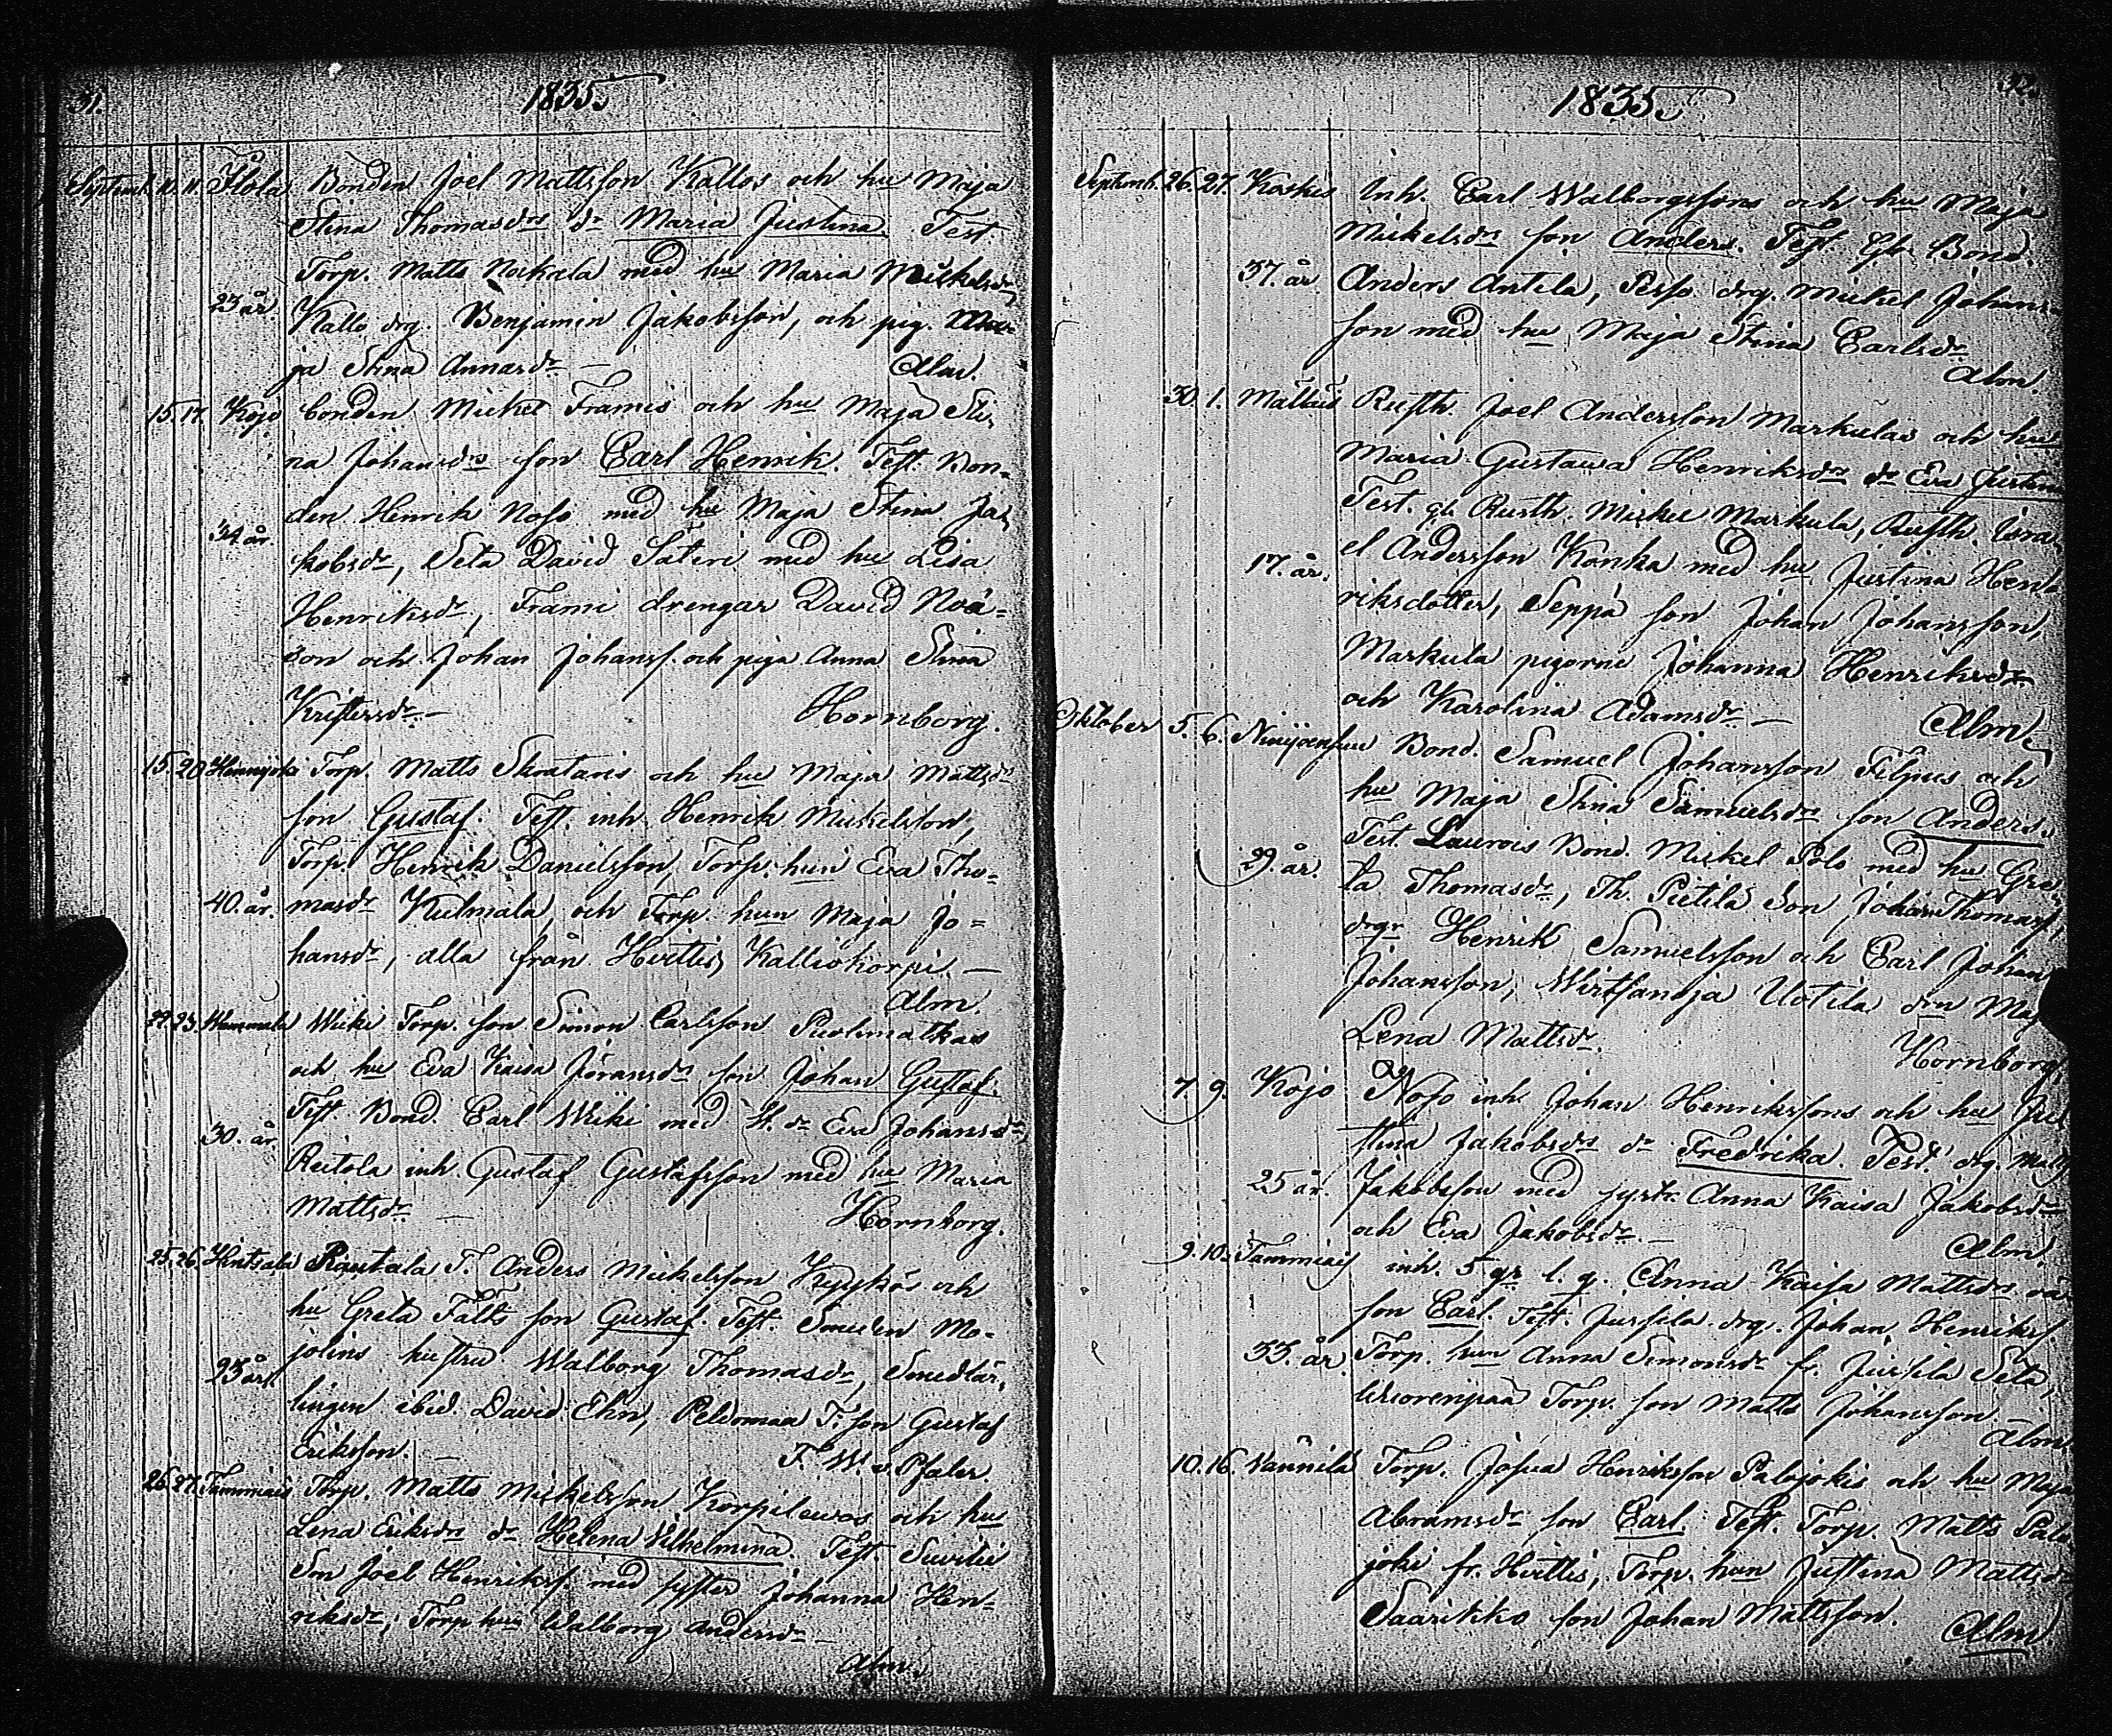 31.
1835
Septemb. 10. 11. Illola Bonden Joel Mattsson Kallos och hu Maja
Stina Thomasdrs dr Maria Justina. Test.
Torp. Matts Nockala med hu Maria Mickelsdr
23 år Kallo drg. Benjamin Jakobsson, och pig. Ma-
ja Stina Annasdr — Alm.
15. 17. Kojo bonden Mickel Framis och hu Maja Sti-
na Johansdrs son Carl Henrik. Test. Bon-
den Henrik Noso med hu Maja Stina Ja-
34 år. kobsdr, Seta David Säteri med hu Lisa
Henriksdr, Frami drengar David Noä-
son och Johan Johanss. och piga Anna Stina
Kristersdr. — Hornborg.
15. 20. Torp. Matts Skrataris och hu Maja Mattsdrs
son Gustaf. Test. inh. Henrik Mickelsson,
Torp. Henrik Danielsson, Torp. hun Eva Tho-
40. år. masdr Kulmala, och Torp. hun Maja Jo-
hansdr, alla från Hvittis, Kalliokorpi —
Alm.
22. 23. Wammala Wiiki Torp. son Simon Carlsson Puolimatkas
och hu Eva Kaisa Jöransdrs son Johan Gustaf.
Test. Bond. Carl Wiiki med H. dr Eva Johansdr,
30. år Reitola inh. Gustaf Gustafsson med hu Maria
Mattsdr. — Hornborg.
25. 26. Hintsala Rautala T. Anders Mickelsson Kyykös och
hu Greta Fälts son Gustaf. Test. Smeden Mo-
jolins hustru Walborg Thomasdr, Smedlär-
23 år lingen ibid. David Ehn, Peldomaa T. son Gustaf
Eriksson. — F. W. v. Pfaler
26. 27. Tammiais Torp. Matts Mickelsson Korpilewos och hu
Lena Eriksdrs dr Helena Vilhelmina. Test.
Son Joel Henrikss. med syster Johanna Hen-
riksdr; Torp hun Walborg Andersdr —
Alm.
32.
1835.
Septemb. 26. 27. Koskis Inh. Carl Walborgssons och hu Maja
Mickelsdrs son Anders. Test. Gl. Bond.
37. år. Anders Antila, Perho drg. Mickel Johans-
son med hu Maja Stina Carlsdr
Alm
30. 1. Mattais Rusth. Joel Andersson Markulas och hu
Maria Gustawa Henriksdrs dr Eva Justina
Test. gl. Rusth. Mickel Markula, Rusth. Isra-
17. år. el Andersson Konka med hu Justina Hen-
riksdotter, Seppä son Johan Johansson,
Markula pigorne Johanna Henriksdr
och Karolina Adamsdr — Alm
Oktober 5. 6. Bond. Samuel Johansson Filpus och
hu Maja Stina Samuelsdrs son Anders.
Test. Laurois Bond. Mickel Polo med hu Gre-
29. år. ta Thomasdr, Th. Pietilä Son Johan Thomass,
drgr Henrik Samuelsson och Carl Johan
Johansson, Wirtsanoja Uotila drn Maj
Lena Mattsdr. Hornborg.
7. 9. Kojo Noso inh. Johan Henrikssons och hu Ju-
stina Jakobsdrs dr Fredrika. Test. drg. Matts
25 år. Jakobsson med systr. Anna Kaisa Jakobsdr
och Eva Jakobsdr. — Alm.
9. 10. Tammiais inh. 5 gr l. q. Anna Kaisa Mattsdrs
son Carl. Test. Jussila drg. Johan Henrikss
33. år Torp. hun Anna Simonsdr fr. Jussila Seta,
Torp. son Matts Johansson.
Alm.
10. 16. Wännilä Torp. Josua Henriksson Palojokis och hu Maja
Abramsdr son Carl. Test. Torp. Matts Palo
joki fr. Hvittis, Torp. hun Justina Mattsdr
Saarikko son Johan Mattsson.
Alm